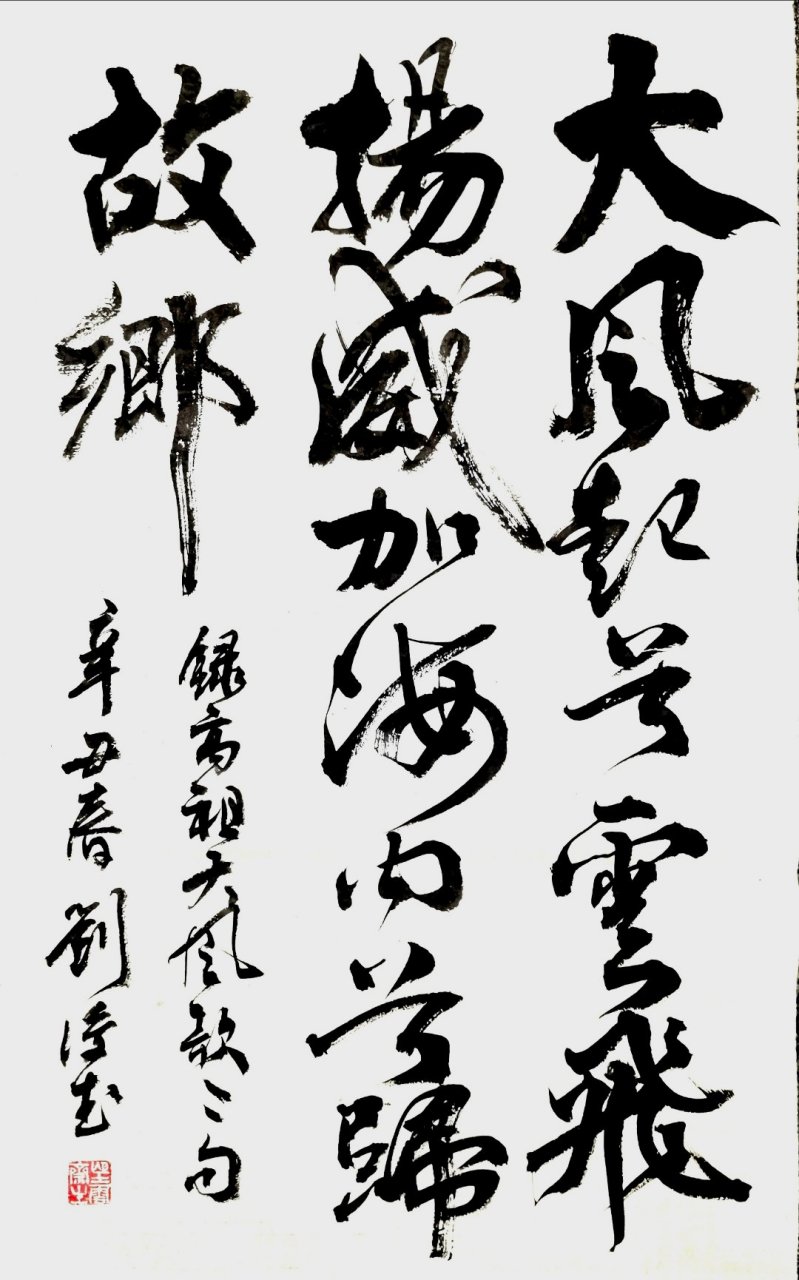 大風起兮雲飛
揚威加海内兮歸
故鄉
録高祖大風歌二句
辛丑春劉